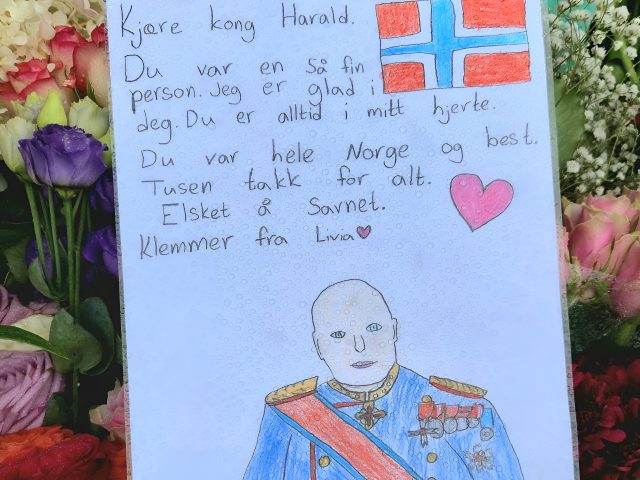 Kjære kong Harald.
Du var en så fin
person. Jeg er glad i
deg. Du er alltid i mitt hjerte.
Du var hele Norge og best.
Tusen takk for alt.
Elsket å Savnet.
Klemmer fra Livia